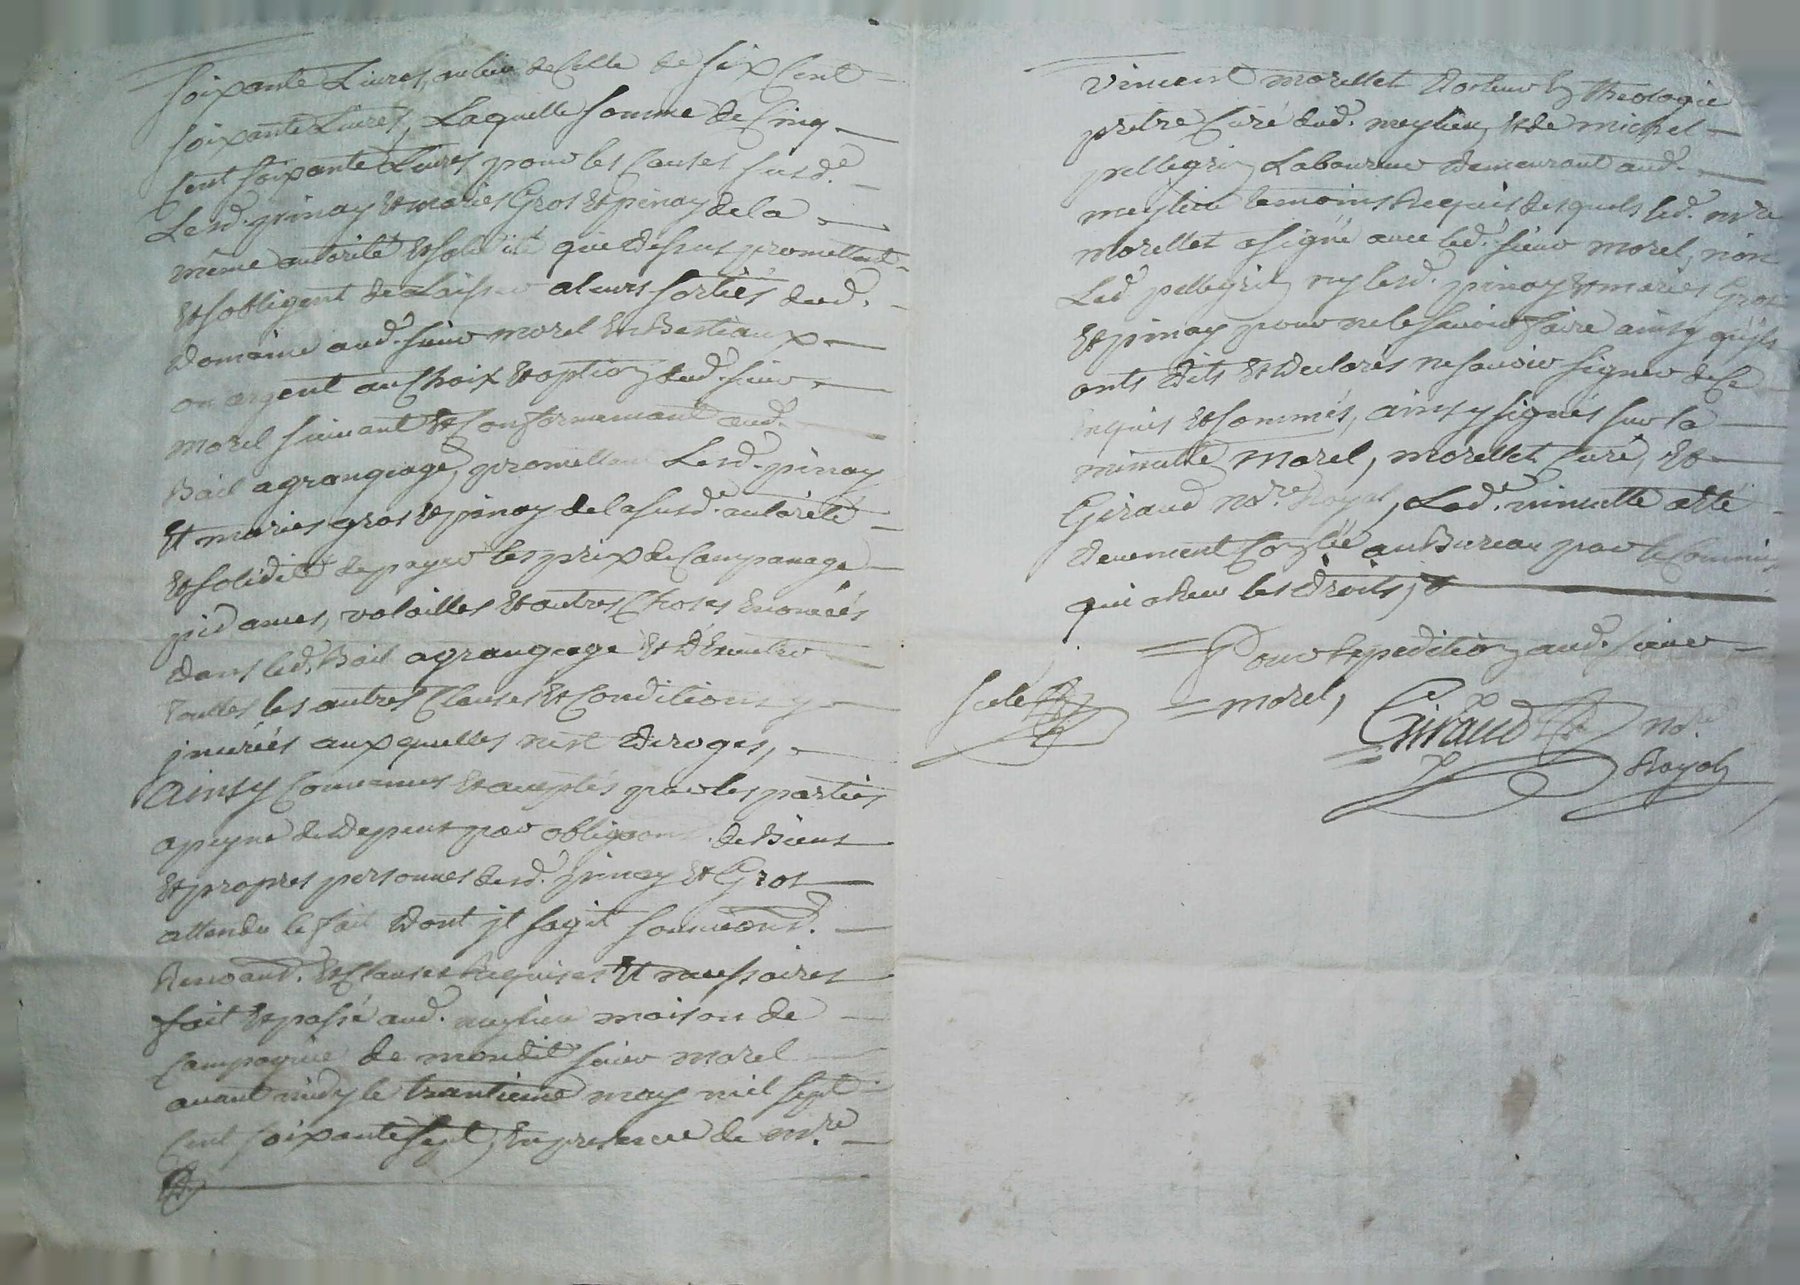 soixante Livres, au lieu de Celle de six Cent
soixante Livres, Laquelle somme de Cinq
Cent soixante Livres pour les Causes susd.e
Lesd. pinay et mariés Gros et pinay de la
même autorité et solidité que dessus promettent
et sobligent de Laisser a leurs sorties dud.
Domaine aud. sieur morel en Bestiaux
ou argent au Choix et option dud. sieur
morel suivant et Conformement aud.
Bail agrangeage, promettant Lesd. pinay
et mariés gros et pinay de la susd. autorité
et solidité de payer les prix de Campanage
pid ances, volailles et autres Choses enoncées
dans led. Bail agrangeage et d'Executer
touttes les autres Clauses et Conditions y
jnserées auxquelles nest deroges,
ainsy Convenues et acceptés par les parties
a peyne de depens par obligaons de Biens
et propres personnes desd. pinay et Gros
attendu le fait dont jl sagit soumions.
Renoans. et Clauses Requises et necessaires
fait et passé aud. meylieu maison de
Campagne de mondit sieur morel
avant midy le trantieme may mil sept
Cent soixante sept, en presence de m.re
vincent morellet docteur en theologie
pretre Curé dud. meylieu, et de michel
pellegrin Laboureur demeurant aud.
meylieu temoins Requis desquels led. m.re
morellet a signé avec led. sieur morel, non
Led pellegrin ny lesd. pinay et mariés Gros
et pinay pour ne le savoir faire ainsy qu'ils
onts dits et declarés ne savoir signer de Ce
enquis et sommés, ainsy signés sur la
minutte Morel, morellet Curé, et
Giraud no.re Royal, Lad. minutte a été
deuement Conlée au Bureau par le Commis
qui a Reu les droits ;
Pour Expedition aud. sieur
morel,
scelé
Giraud no.re
Royal